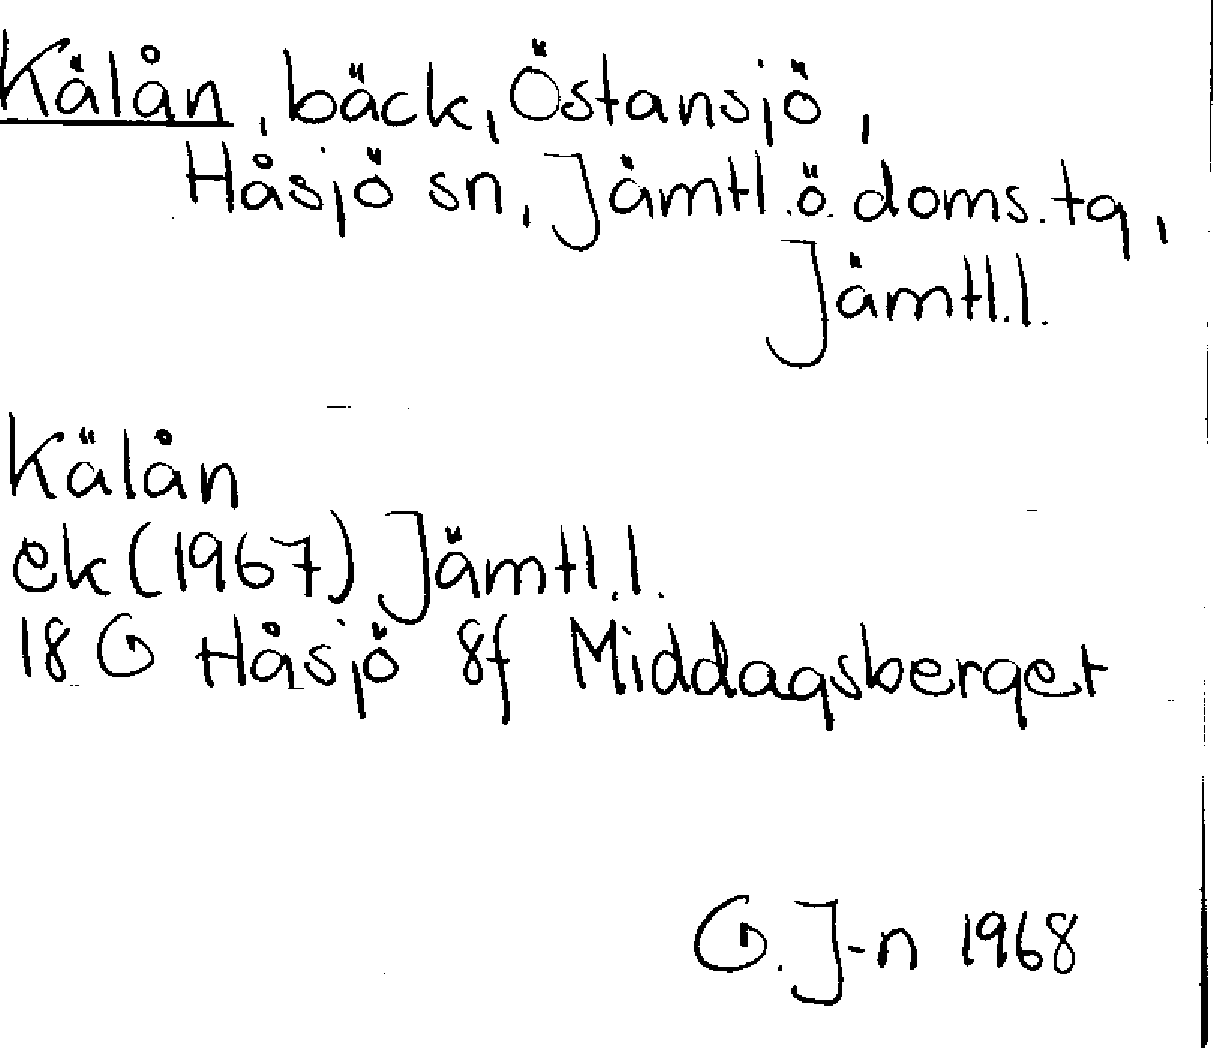 Kälån, bäck, Östansjö,
Håsjö sn, Jämtl. ö. doms. tg,
Jämtl. l.
Kälån
ek (1967) Jämtl. l.
18 G Håsjö 8f Middagsberget
G. J-n 1968